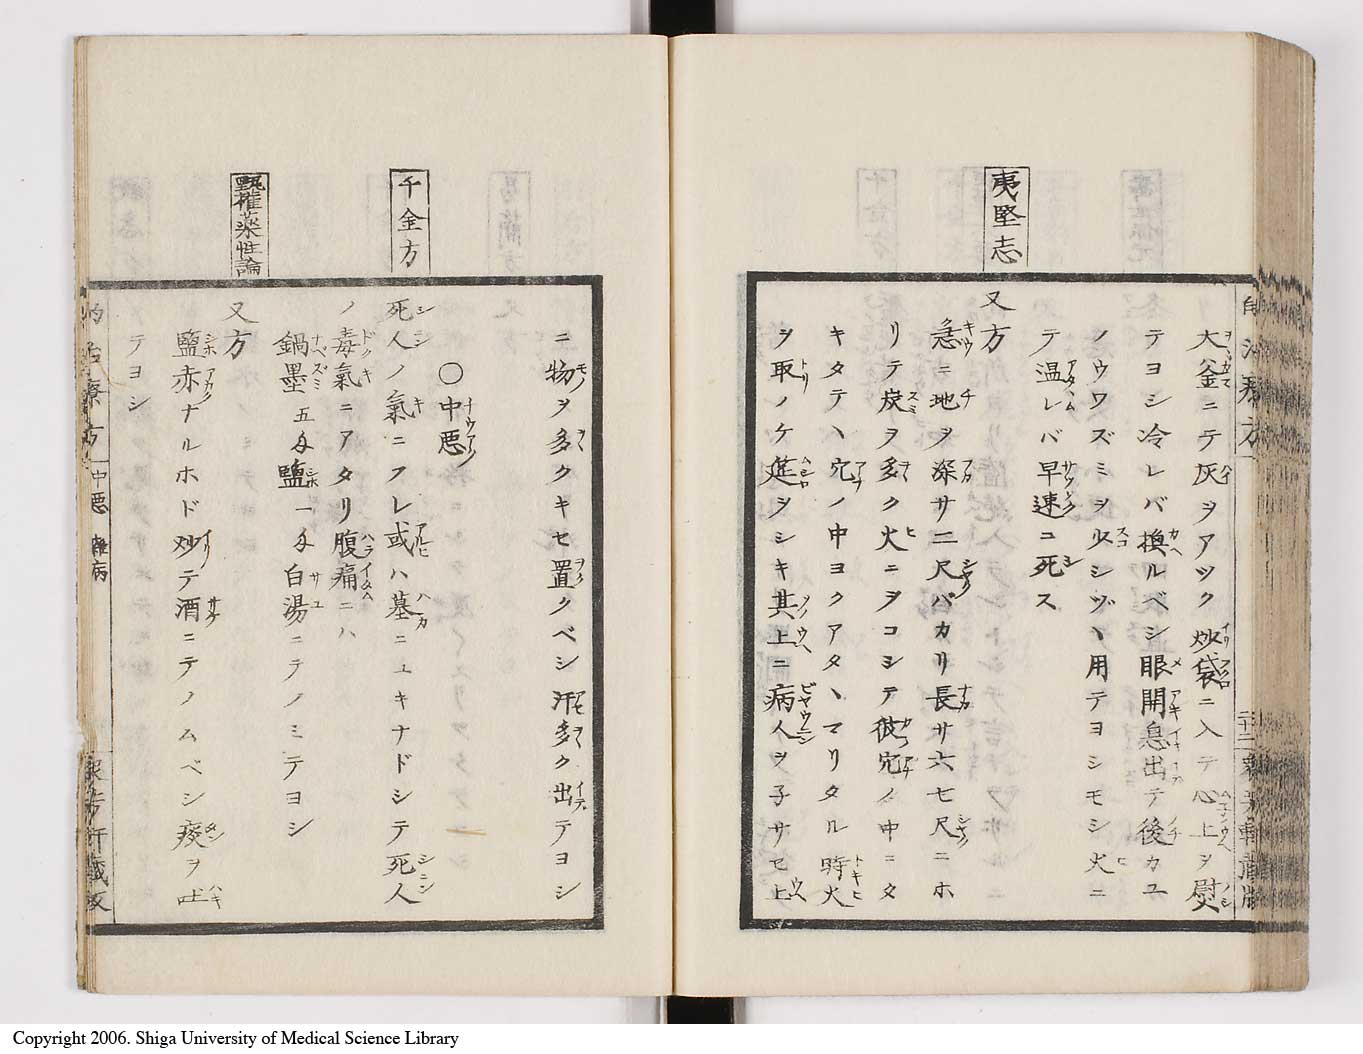 大釜ニテ灰ヲアツク炒袋ニ入テ心上ヲ熨
テヨシ冷レバ換ルベシ眼開息出テ後カユ
ノウワズミヲ少シヅヽ用テヨシモシ火ニ
テ温レバ早速ニ死ス
夷堅志
又方
急ニ地ヲ深サ二尺バカリ長サ六七尺ニホ
リテ炭ヲ多ク火ニヲコシテ彼穴ノ中ニタ
キタテヽ穴ノ中ヨクアタヽマリタル時火
ヲ取ノケ莚ヲシキ其上ニ病人ヲ子サセ上
ニ物ヲ多クキセ置クベシ汗多ク出テヨシ
〇中悪
千金方
死人ノ氣ニフレ或ハ墓ニユキナドシテ死人
ノ毒氣ニアタリ腹痛ニハ
鍋墨五匁鹽一匁白湯ニテノミテヨシ
甄權薬性論
又方
鹽赤ナルホド炒テ酒ニテノムベシ痰ヲ吐
テヨシ
中悪
Copyright 2006. Shiga University of Medical Science Library